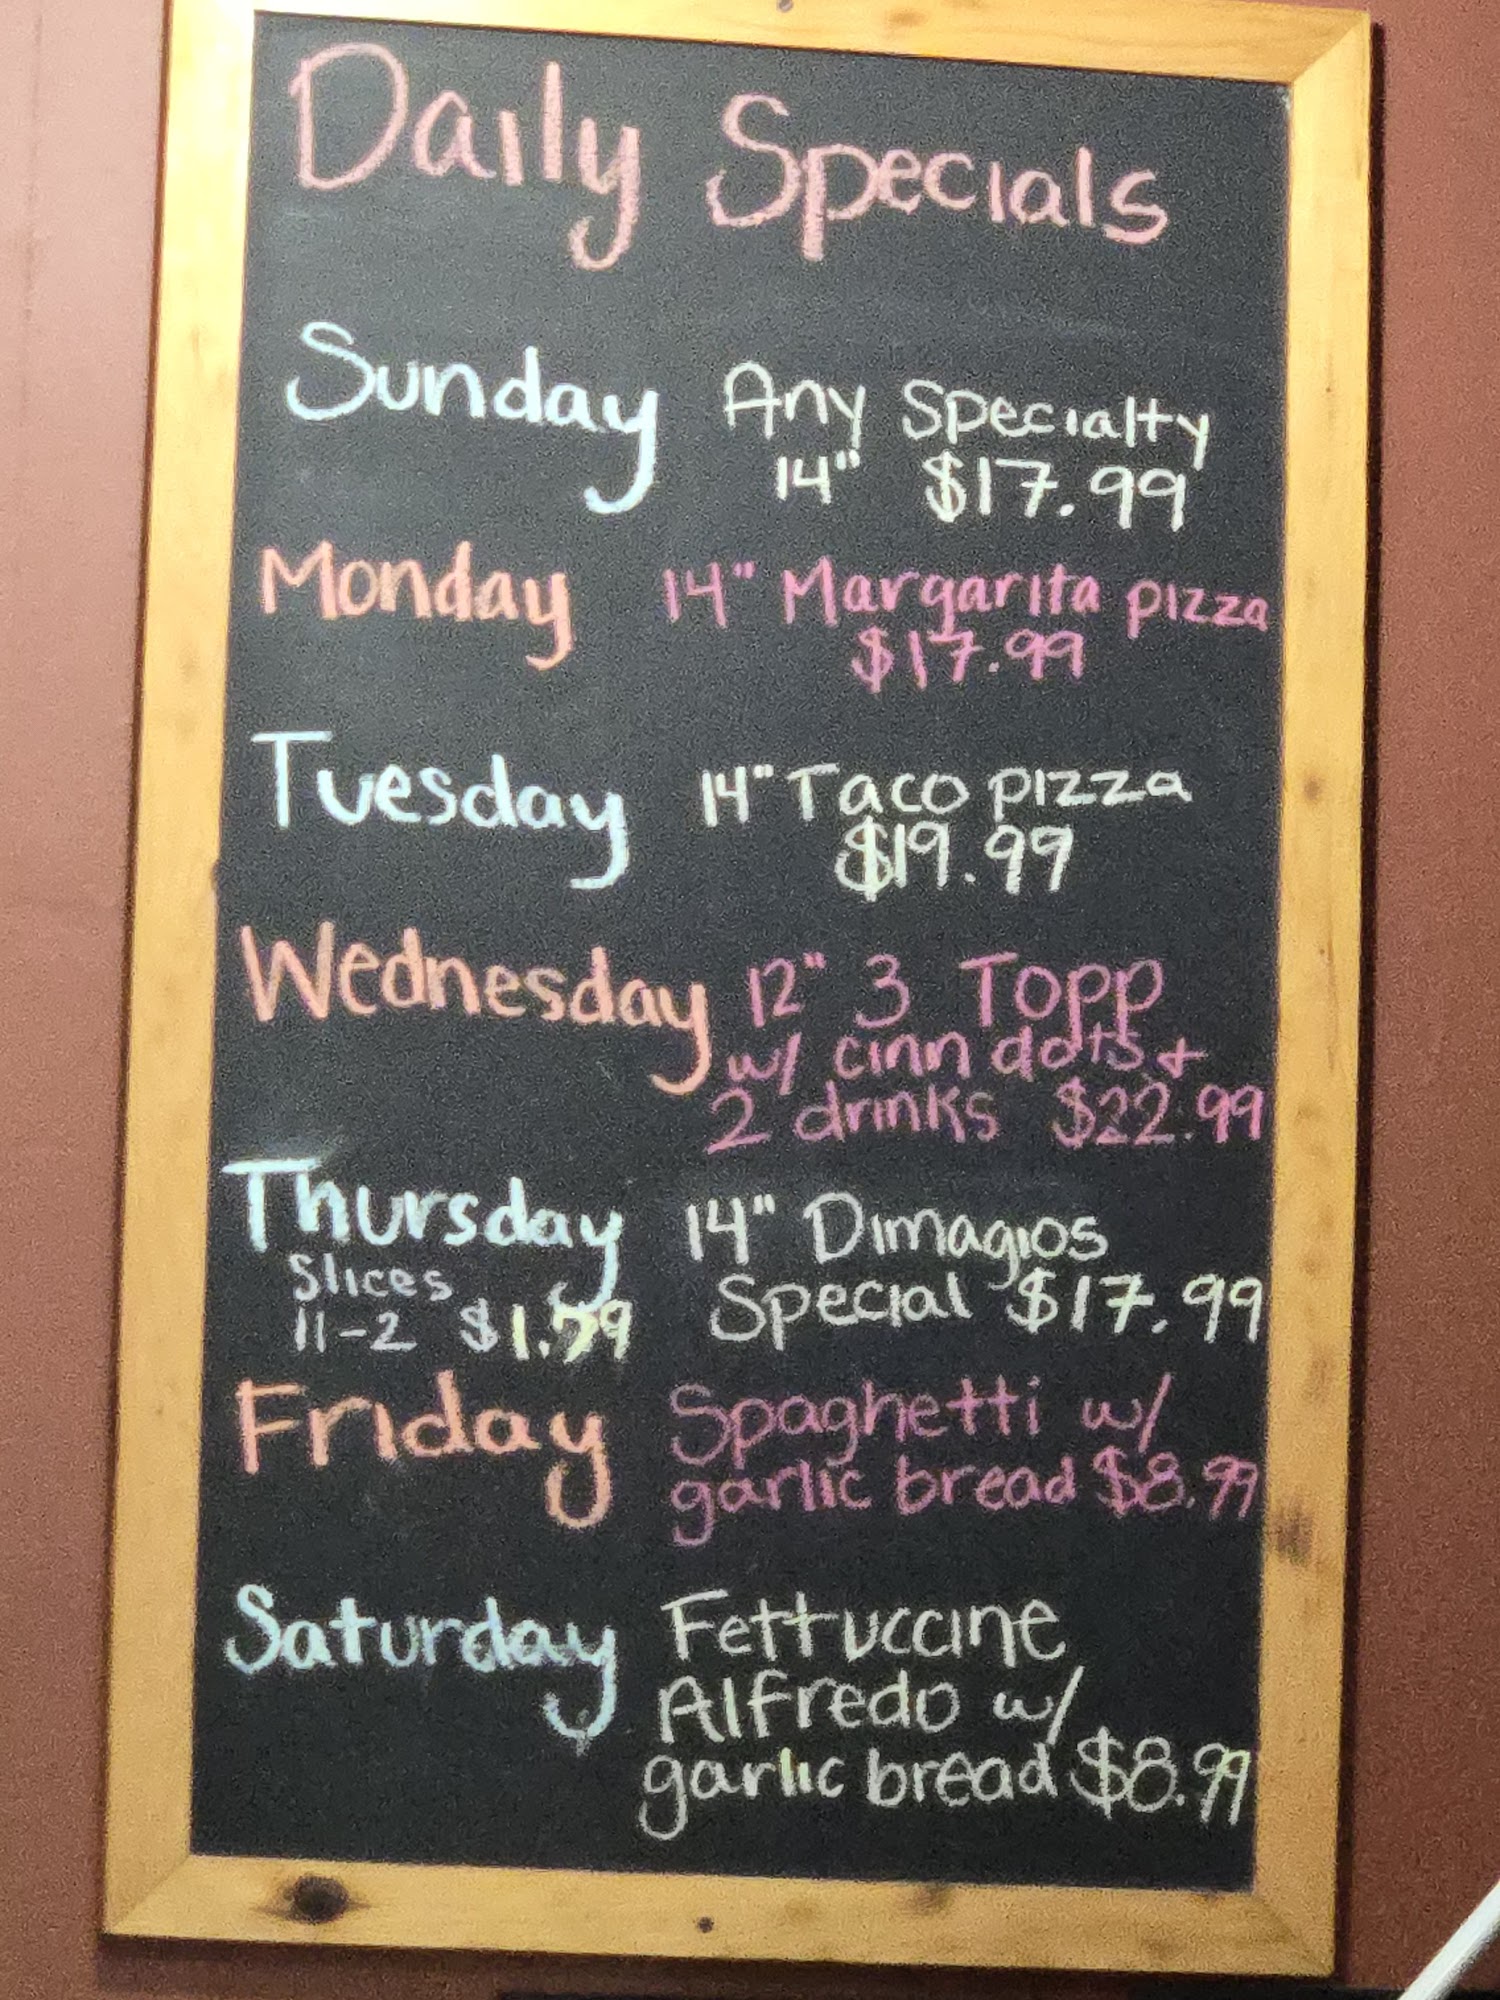 Daily Specials
Sunday Any Specialty
14" $17.99
Monday 14" Margarita pizza
$17.99
Tuesday 14" Taco pizza
$19.99
Wednesday 12" 3 Topp
w/ cinn dots +
2 drinks $22.99
Thursday 14" Dimagios
Slices Special $17.99
11-2
Friday Spaghetti w/
garlic bread $8.99
Saturday Fettuccine
Alfredo w/
garlic bread $8.99